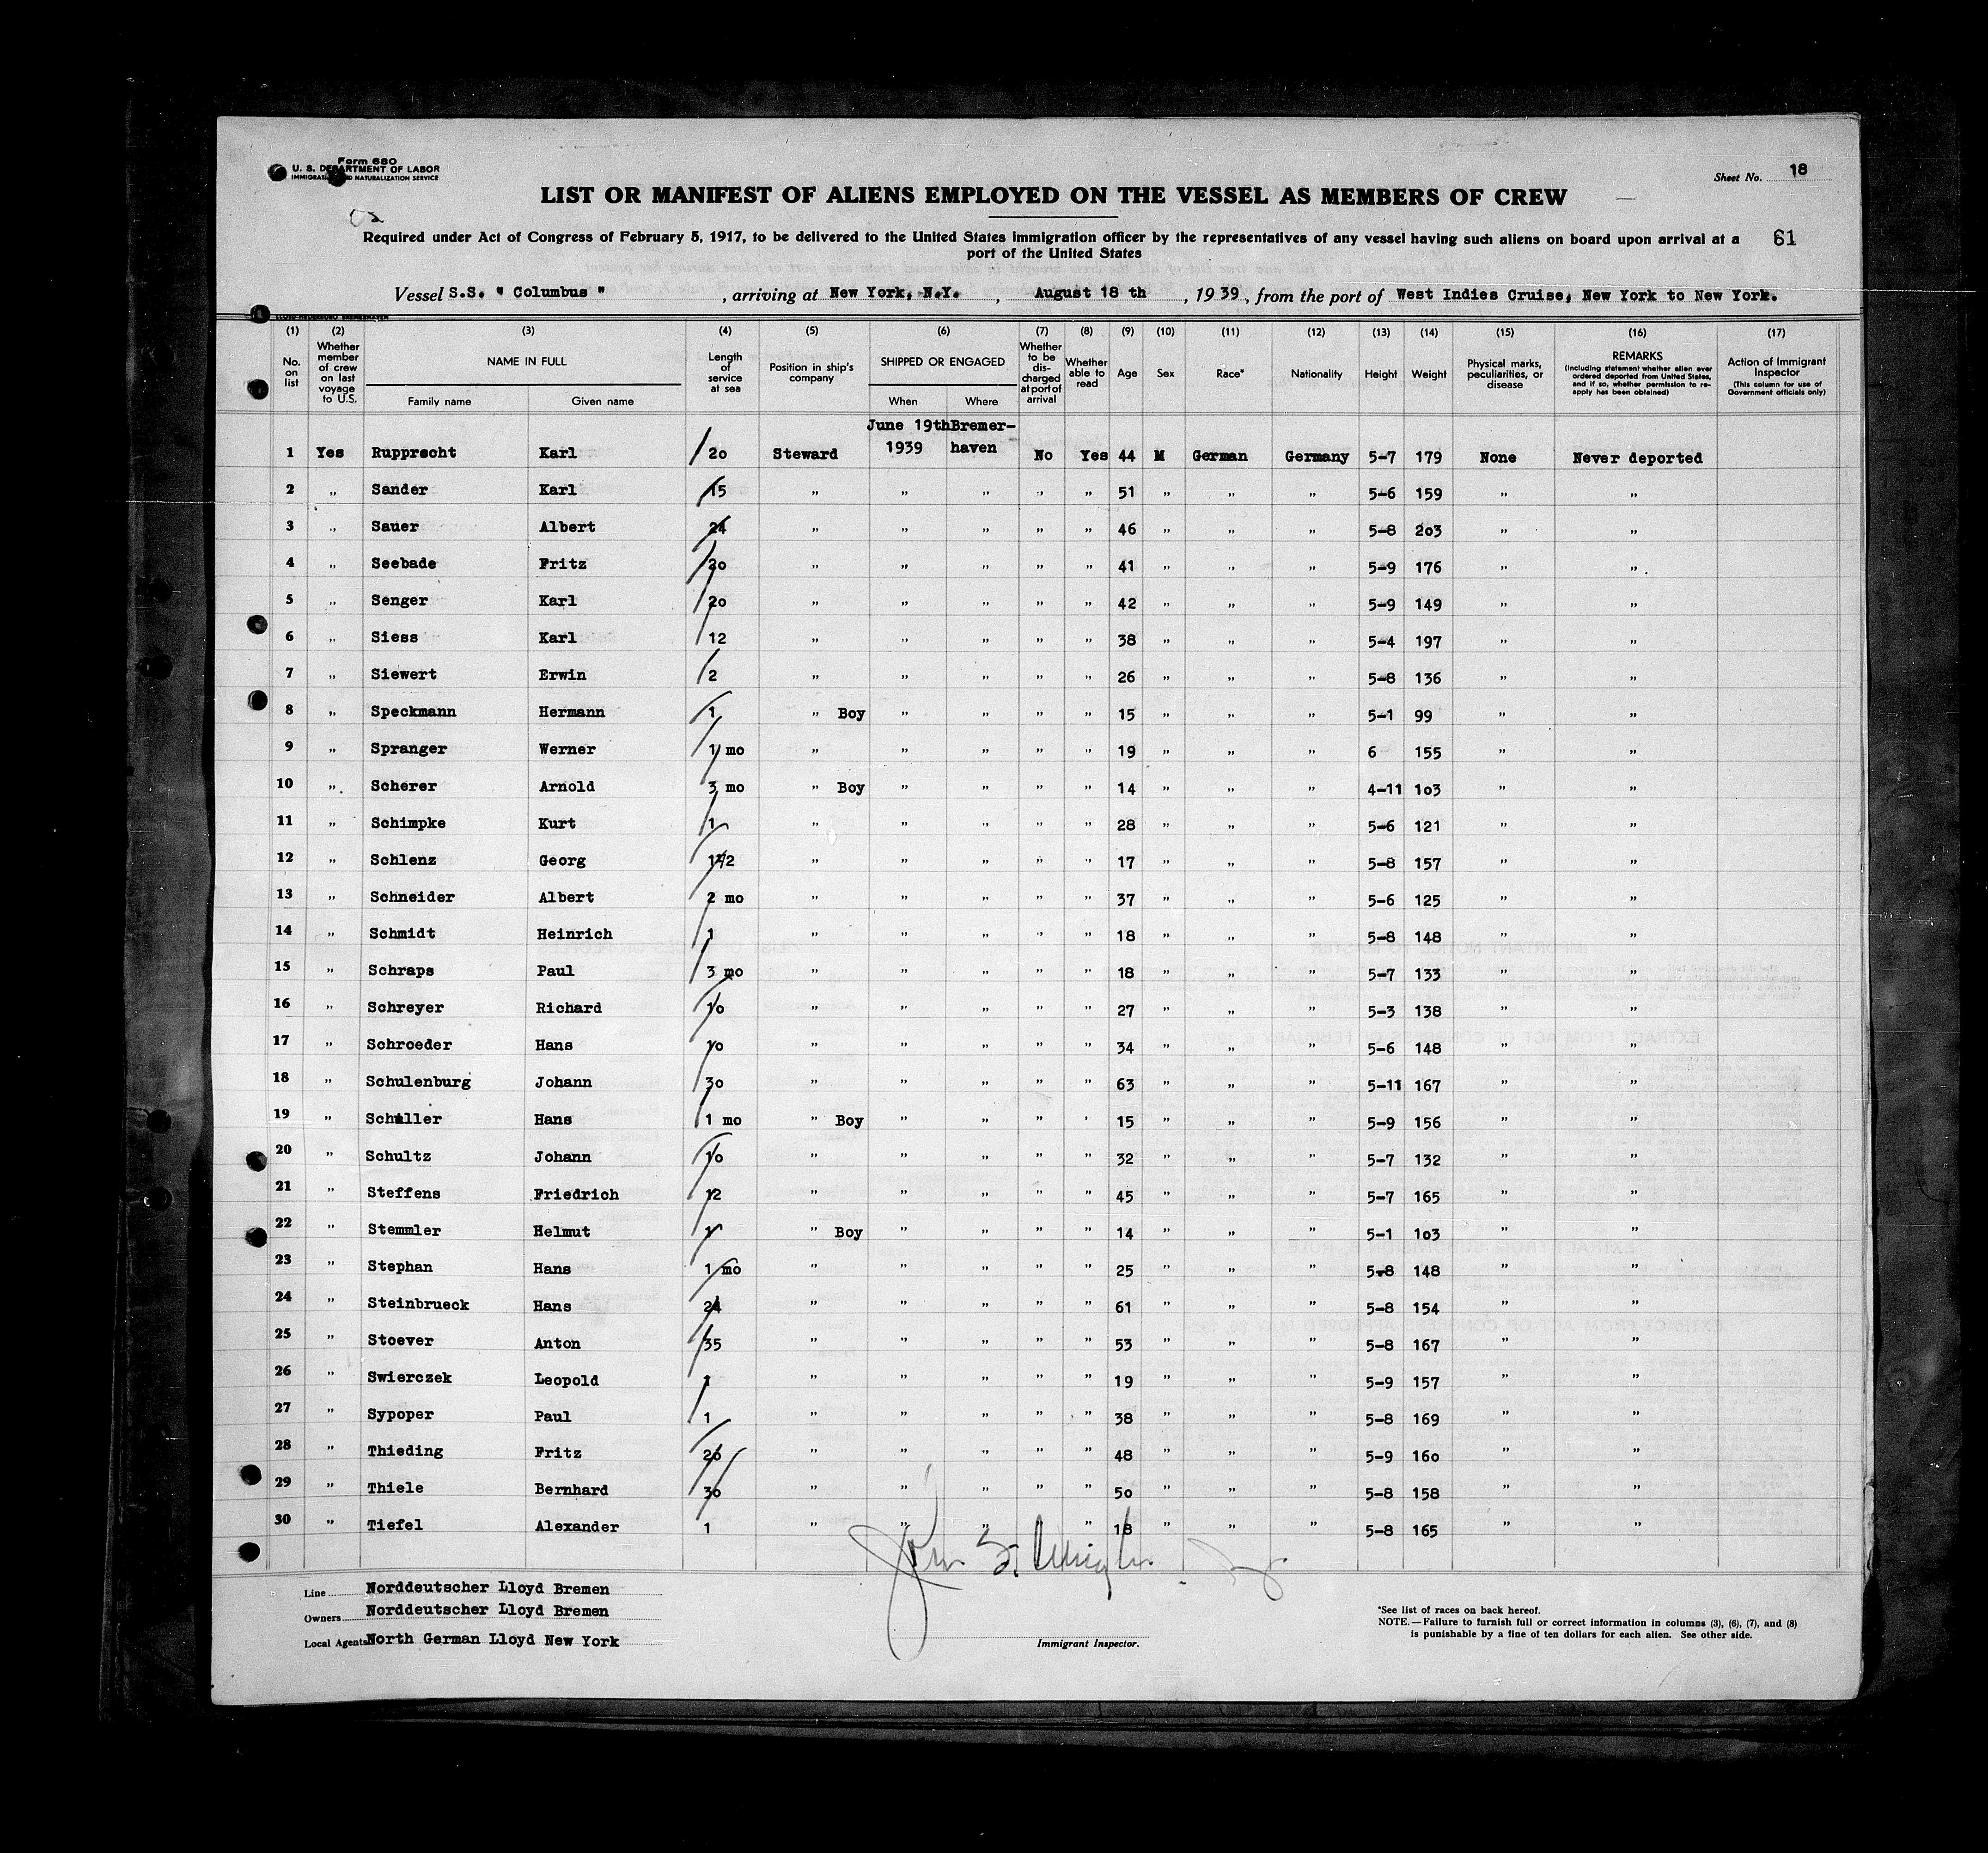 Form 680
U. S. DEPARTMENT OF LABOR
IMMIGRATION AND NATURALIZATION SERVICE
Sheet No. 18
LIST OR MANIFEST OF ALIENS EMPLOYED ON THE VESSEL AS MEMBERS OF CREW
Required under Act of Congress of February 5, 1917, to be delivered to the United States immigration officer by the representatives of any vessel having such aliens on board upon arrival at a
port of the United States
61
Vessel S.S. " Columbus " , arriving at New York, N.Y. , August 18 th , 1939, from the port of West Indies Cruise, New York to New York.
(1) (2) (3) (4) (5) (6) (7) (8) (9) (10) (11) (12) (13) (14) (15) (16) (17)
No. on list Whether member of crew on last voyage to U.S. NAME IN FULL Family name Given name Length of service at sea Position in ship's company SHIPPED OR ENGAGED When Where Whether to be discharged at port of arrival Whether able to read Age Sex Race* Nationality Height Weight Physical marks, peculiarities, or disease REMARKS (Including statement whether alien ever ordered deported from United States, and if so, whether permission to reapply has been obtained) Action of Immigrant Inspector (This column for use of Government officials only)
1 Yes Rupprecht Karl 20 Steward June 19th 1939 Bremerhaven No Yes 44 M German Germany 5-7 179 None Never deported
2 " Sander Karl 15 " " " " " 51 " " " 5-6 159 " "
3 " Sauer Albert 24 " " " " " 46 " " " 5-8 203 " "
4 " Seebade Fritz 20 " " " " " 41 " " " 5-9 176 " "
5 " Senger Karl 20 " " " " " 42 " " " 5-9 149 " "
6 " Siess Karl 12 " " " " " 38 " " " 5-4 197 " "
7 " Siewert Erwin 2 " " " " " 26 " " " 5-8 136 " "
8 " Speckmann Hermann 1 " Boy " " " " 15 " " " 5-1 99 " "
9 " Spranger Werner 1 mo " " " " " 19 " " " 6 155 " "
10 " Scherer Arnold 3 mo " Boy " " " " 14 " " " 4-11 103 " "
11 " Schimpke Kurt 1 " " " " " 28 " " " 5-6 121 " "
12 " Schlenz Georg 1 1/2 " " " " " 17 " " " 5-8 157 " "
13 " Schneider Albert 2 mo " " " " " 37 " " " 5-6 125 " "
14 " Schmidt Heinrich 1 " " " " " 18 " " " 5-8 148 " "
15 " Schraps Paul 3 mo " " " " " 18 " " " 5-7 133 " "
16 " Schreyer Richard 10 " " " " " 27 " " " 5-3 138 " "
17 " Schroeder Hans 10 " " " " " 34 " " " 5-6 148 " "
18 " Schulenburg Johann 30 " " " " " 63 " " " 5-11 167 " "
19 " Hans 1 mo " Boy " " " " 15 " " " 5-9 156 " "
20 " Schultz Johann 10 " " " " " 32 " " " 5-7 132 " "
21 " Steffens Friedrich 12 " " " " " 45 " " " 5-7 165 " "
22 " Stemmler Helmut 1 " Boy " " " " 14 " " " 5-1 103 " "
23 " Stephan Hans 1 mo " " " " " 25 " " " 5-8 148 " "
24 " Steinbrueck Hans 24 " " " " " 61 " " " 5-8 154 " "
25 " Stoever Anton 35 " " " " " 53 " " " 5-8 167 " "
26 " Swierczek Leopold 1 " " " " " 19 " " " 5-9 157 " "
27 " Sypoper Paul 1 " " " " " 38 " " " 5-8 169 " "
28 " Thieding Fritz 26 " " " " " 48 " " " 5-9 160 " "
29 " Thiele Bernhard 30 " " " " " 50 " " " 5-8 158 " "
30 " Tiefel Alexander 1 " " " " " 18 " " " 5-8 165 " "
Line Norddeutscher Lloyd Bremen
Owners Norddeutscher Lloyd Bremen
Local Agents North German Lloyd New York
Immigrant Inspector.
*See list of races on back hereof.
NOTE.—Failure to furnish full or correct information in columns (3), (6), (7), and (8)
is punishable by a fine of ten dollars for each alien. See other side.